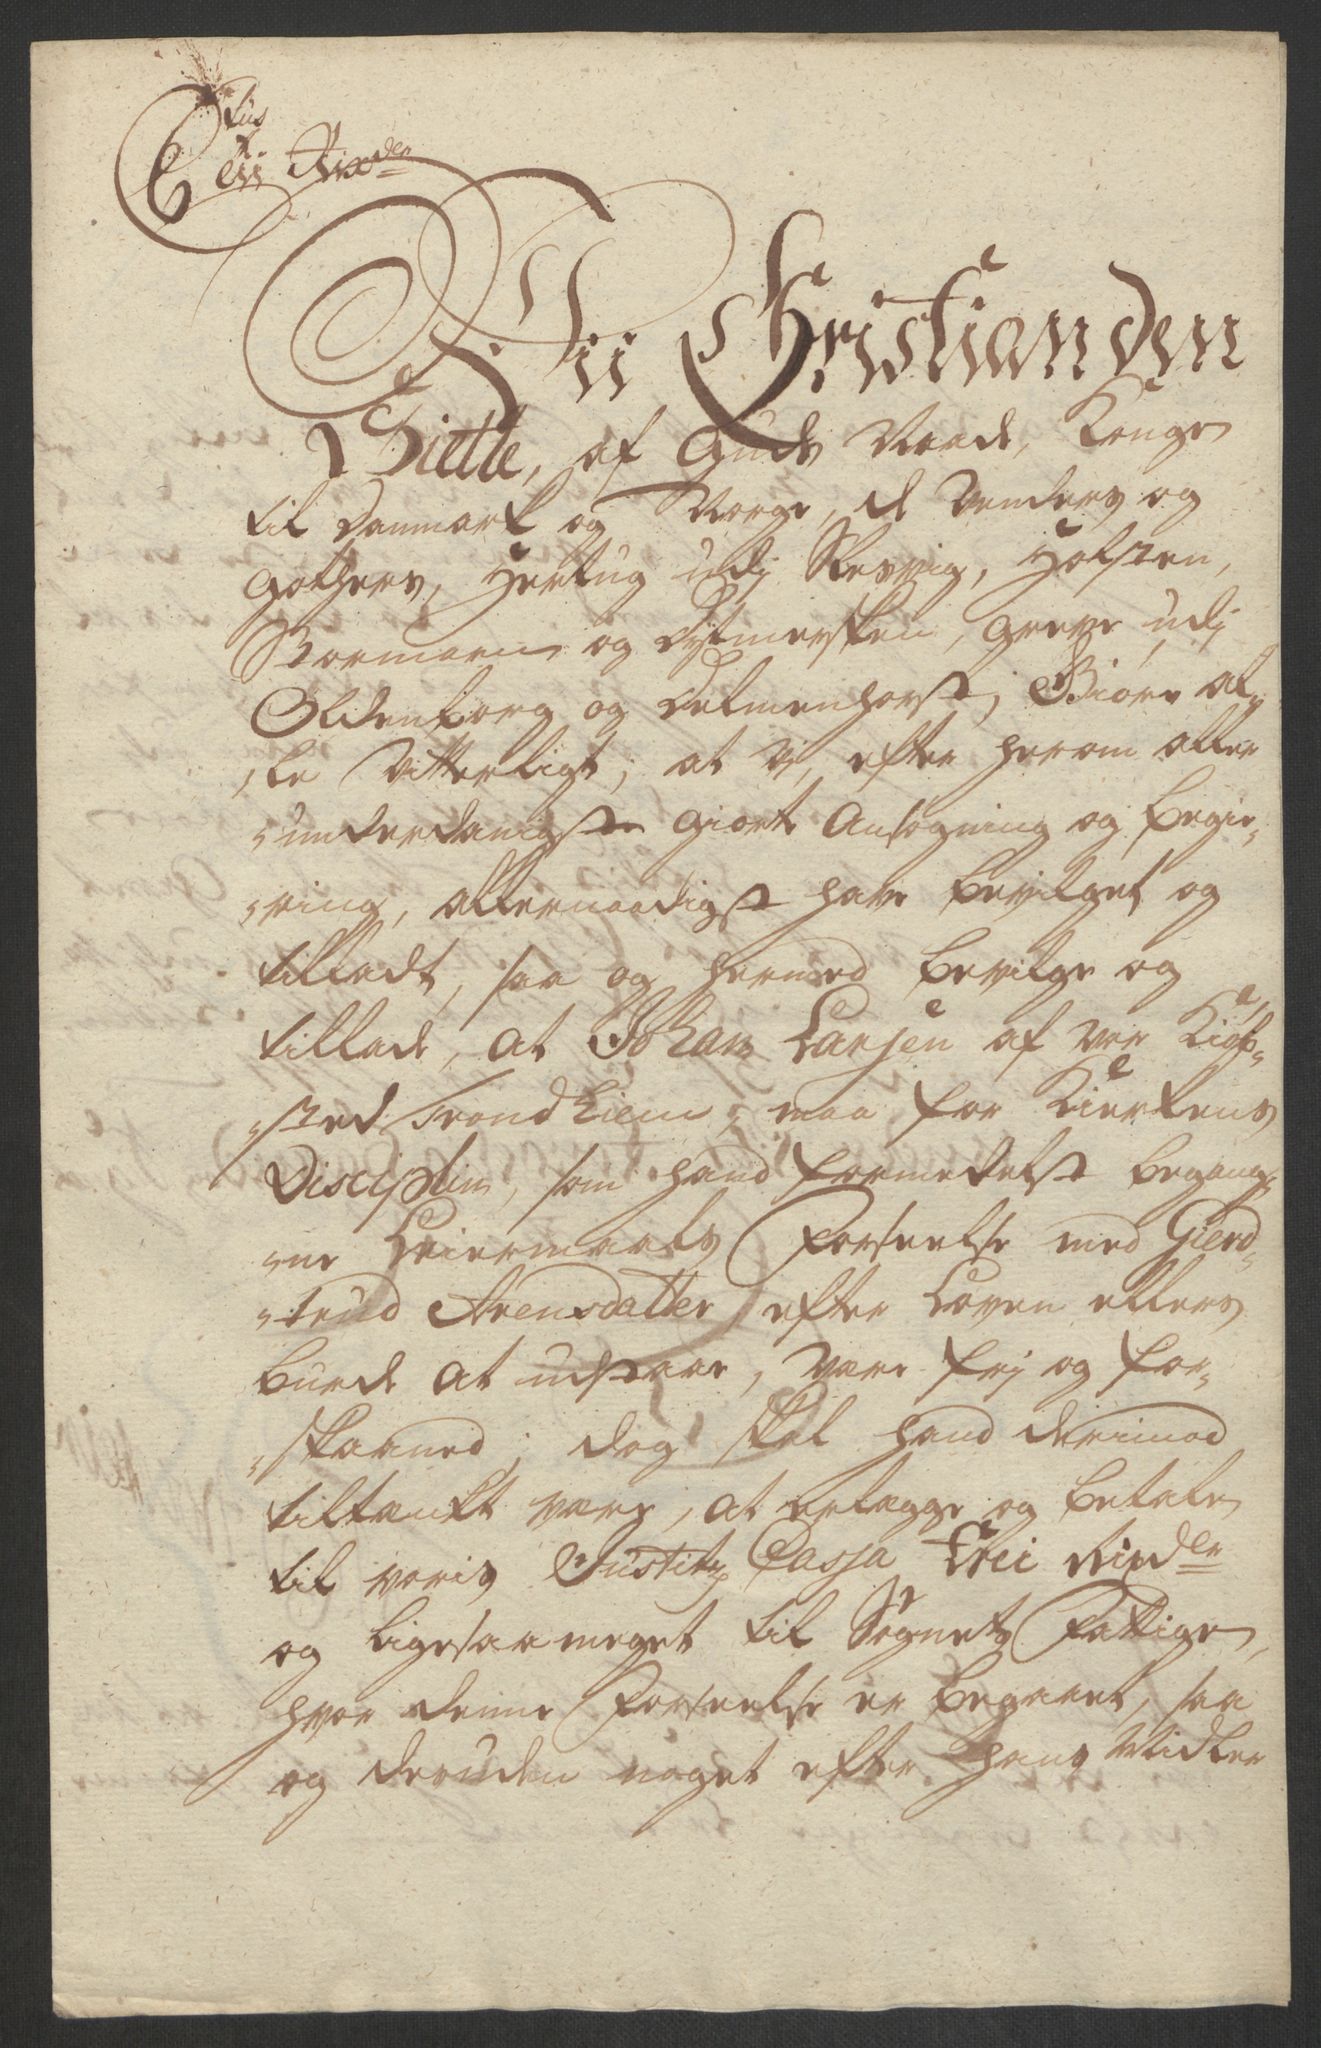 Vii Christian den
Siette, af Guds Naade, Konge
til Danmark og Norge, de Venders og
Gothers, Hertug udj Slesvig, Holsten,
Stormarn og Dytmersken, Greve udj
Oldenborg og Delmenhorst; Giøre al-
-le Vitterligt, at Vj, efter herom aller
-underdanigst giorte Ansøgning og begie-
-ring, allernaadigst have bevilget og
tilladt, saa og hermed bevilge og
tillade, at Johan Larsen af vor Kiøb-
-sted Trondhiem, maa for Kierkens
Disciplin, som hand formedelst begang-
-ne Leiermaals Forseelse med Gierd-
-trud Arensdatter, efter Loven ellers
burde at udstaae, være frj og for-
-skaaned; dog skal hand derimod
tiltænkt være, at erlægge og betale
til voris Justitz Cassa Trei Rixder
og ligesaa meget til Sognets Fattige,
hvor denne Forseelse er begaaet, saa
og desuden noget efter hans Midler